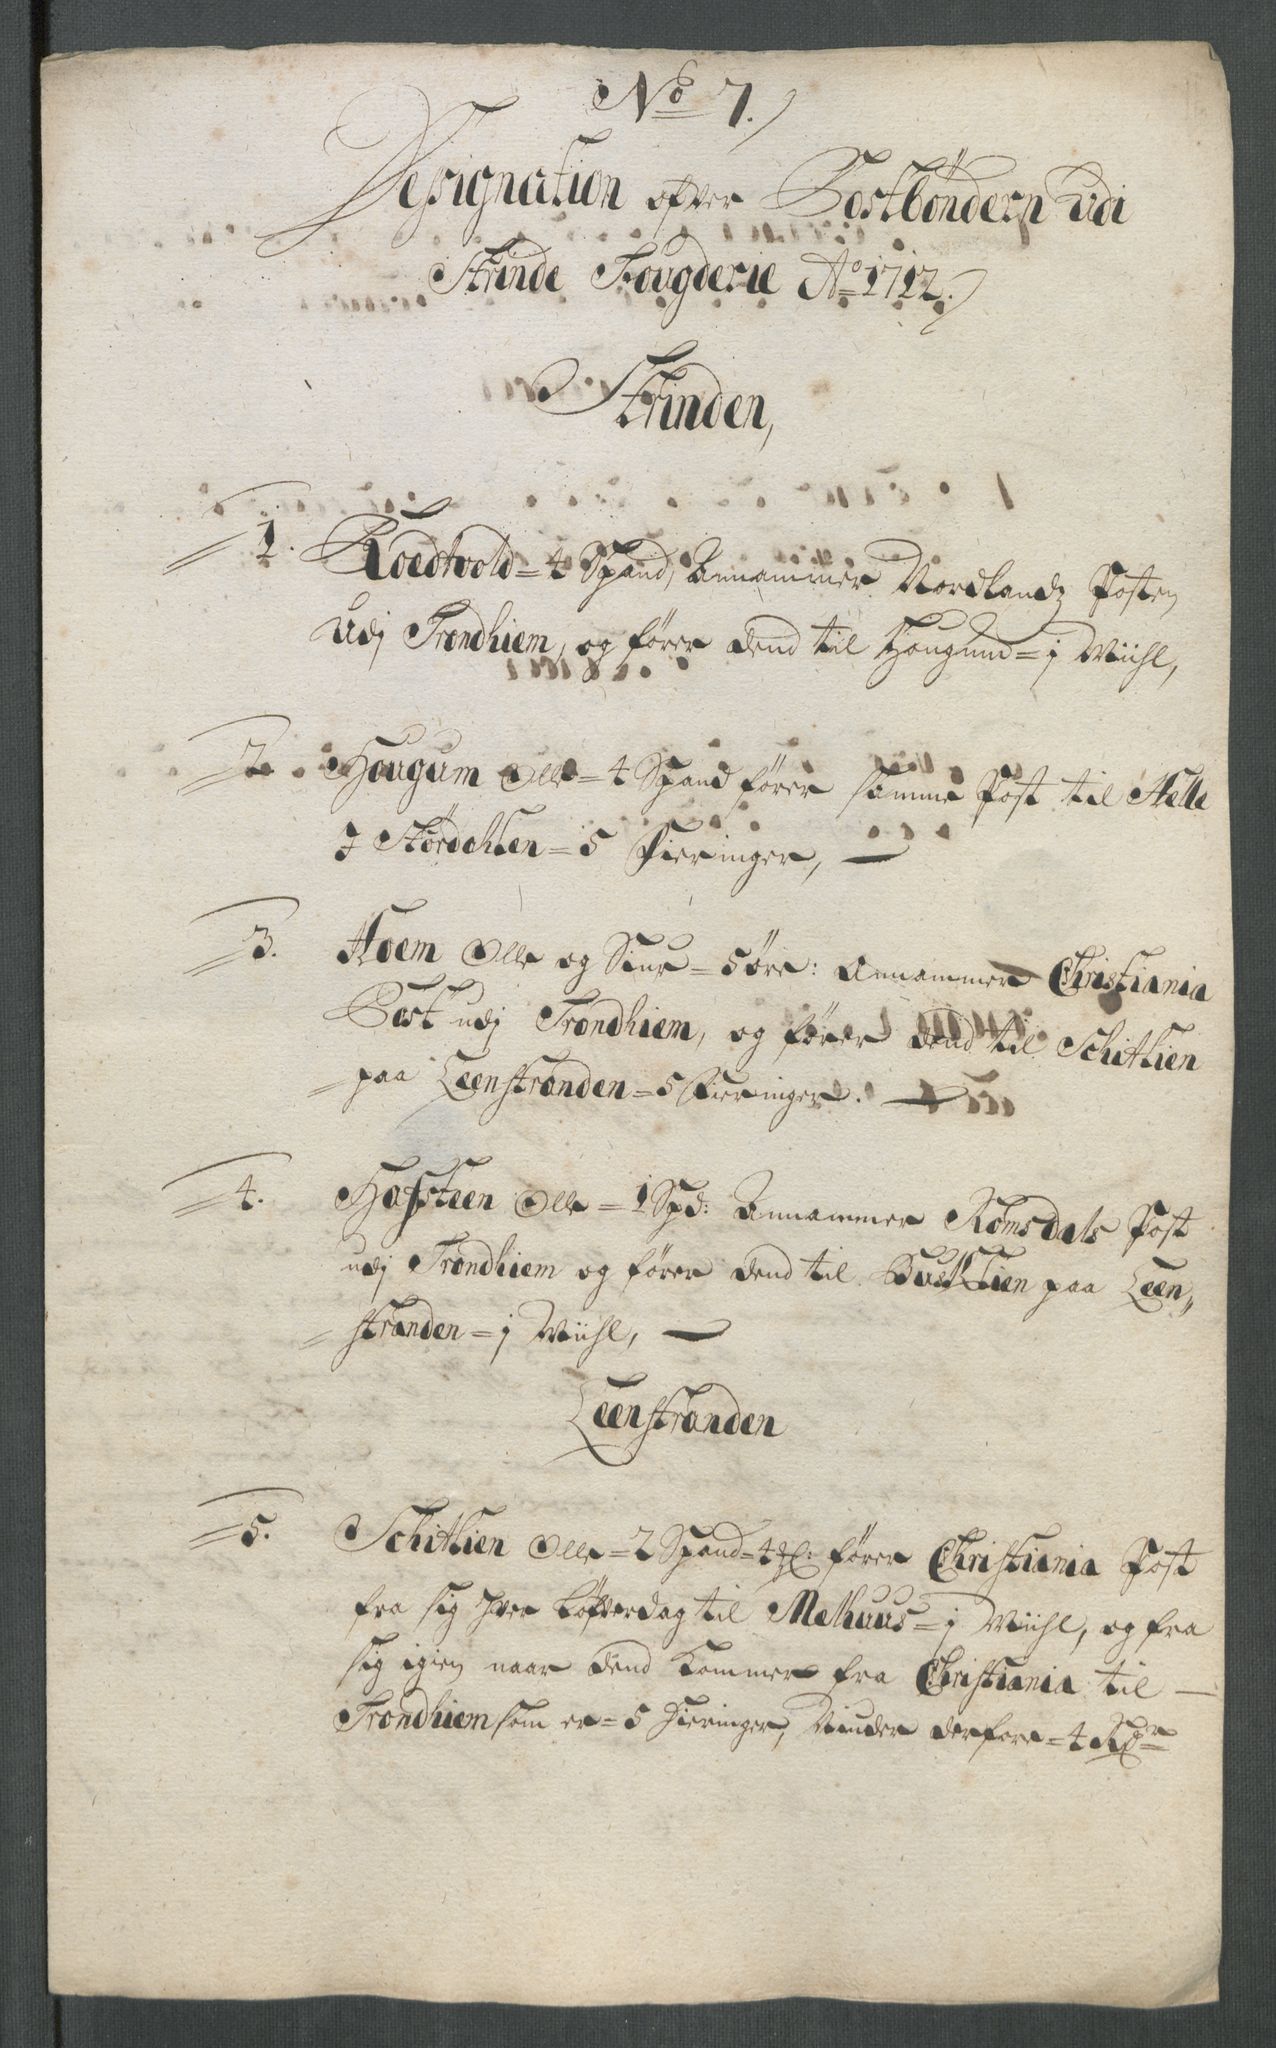 No 7.
Designation ofver Postbøndern udi
Strinde Fougderie Ao 1712.
Strinden,
1. Roedtvold = 4 Spand, Annammer Nordlandz Posten
udj Trondhiem, og fører dend til Hougum = j Miihl,
2. Hougum Olle = 4 Spand fører samme Post til Helle
j Størdahlen = 5 Fieringer,
3. Hoem Olle og Siur = 5 øre: Annammer Christiania
Post udj Trondhiem, og fører dend til Schithlien
paa Leenstranden = 5 Fieringer.
4. Hafsteen Olle = 1 Spd: Annammer Romsdals Post
udj Trondhiem og fører dend til paa Leen„
stranden = j Miihl,
Leenstranden
5. Schithlien Olle = 2 Spand = 4 fører Christiania Post
fra sig hver Løfverdag til Melhuus = j Miihl, og fra
sig igien naar dend kommer fra Christiania til
Trondhiem som er = 5 Fieringer, Niuder derfore = 4 Rdr